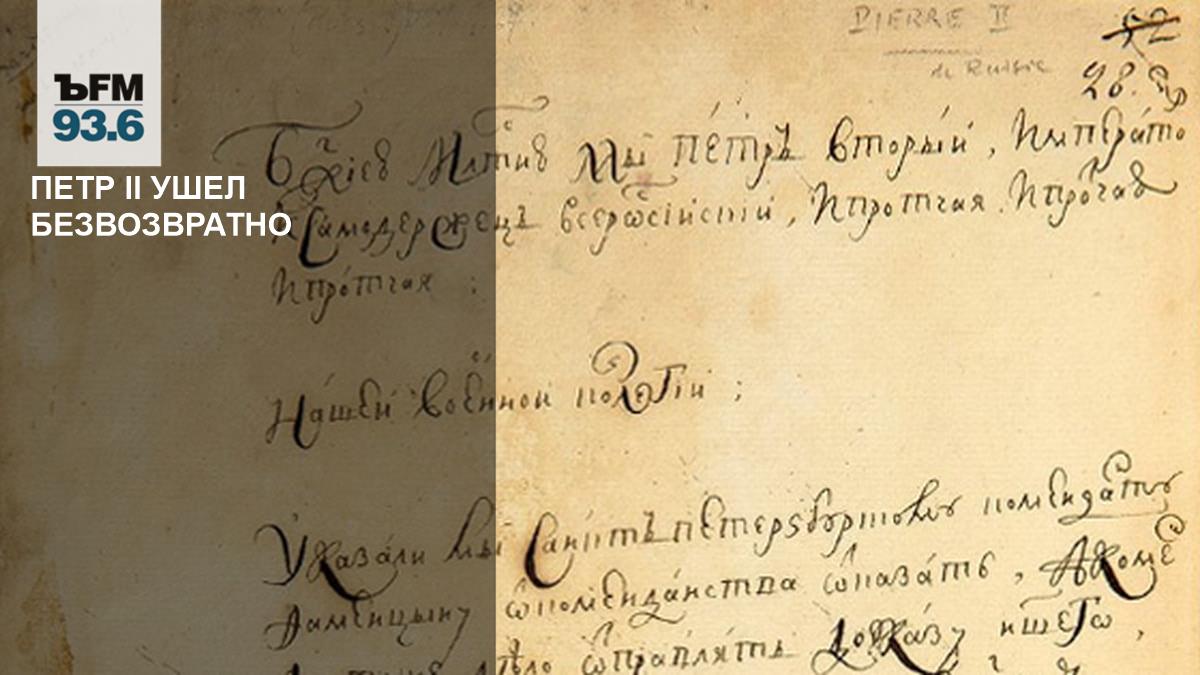 ЪFM
93.6
ПЕТР II УШЕЛ
БЕЗВОЗВРАТНО
PIERRE II
de Russie
52
28.
Бж҃іею Мл҃тию Мы пе́тръ вторы́й, Императо
И Самодержецъ всерѡсіи́скіи, И про́тчая. И про́чая
И про́тчая :
На́шей вое́нной колегіи ;
Указа́ли мы Санктъ петерѕбургскому коменда́нту
ѡ коменда́нства ѡтказа́ть, А
ѡтправля́ть до указу нш҃егѡ,